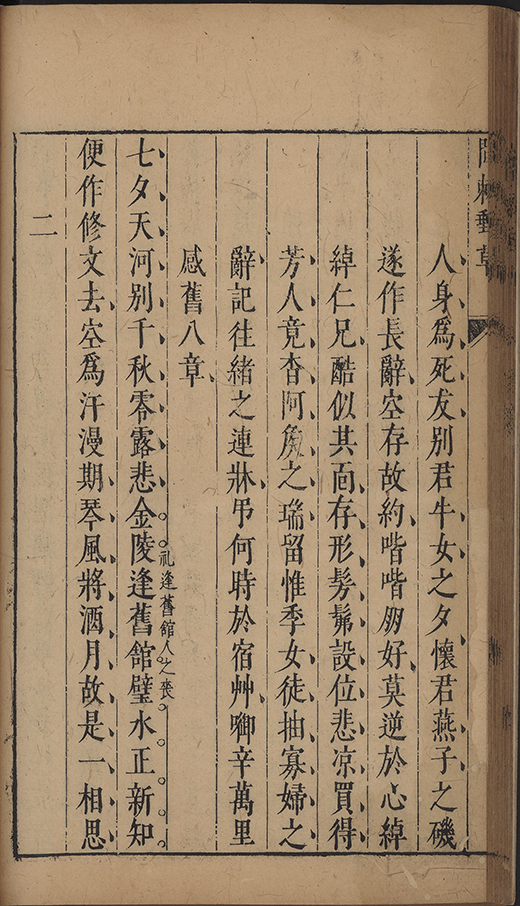 問棘郵草
人身爲死友別君牛女之夕懷君燕子之磯
遂作長辭空存故約喈喈朋好莫逆於心綽
綽仁兄酷似其面存形髣髴設位悲凉買得
芳人竟杳阿矦之瑞留惟季女徒抽寡婦之
辭記往緒之連牀吊何時於宿艸啣辛萬里
感舊八章
七夕天河別千秋零露悲金陵逢舊館璧水正新知
礼逢舊館人之喪
便作修文去空爲汗漫期琴風將酒月故是一相思
二